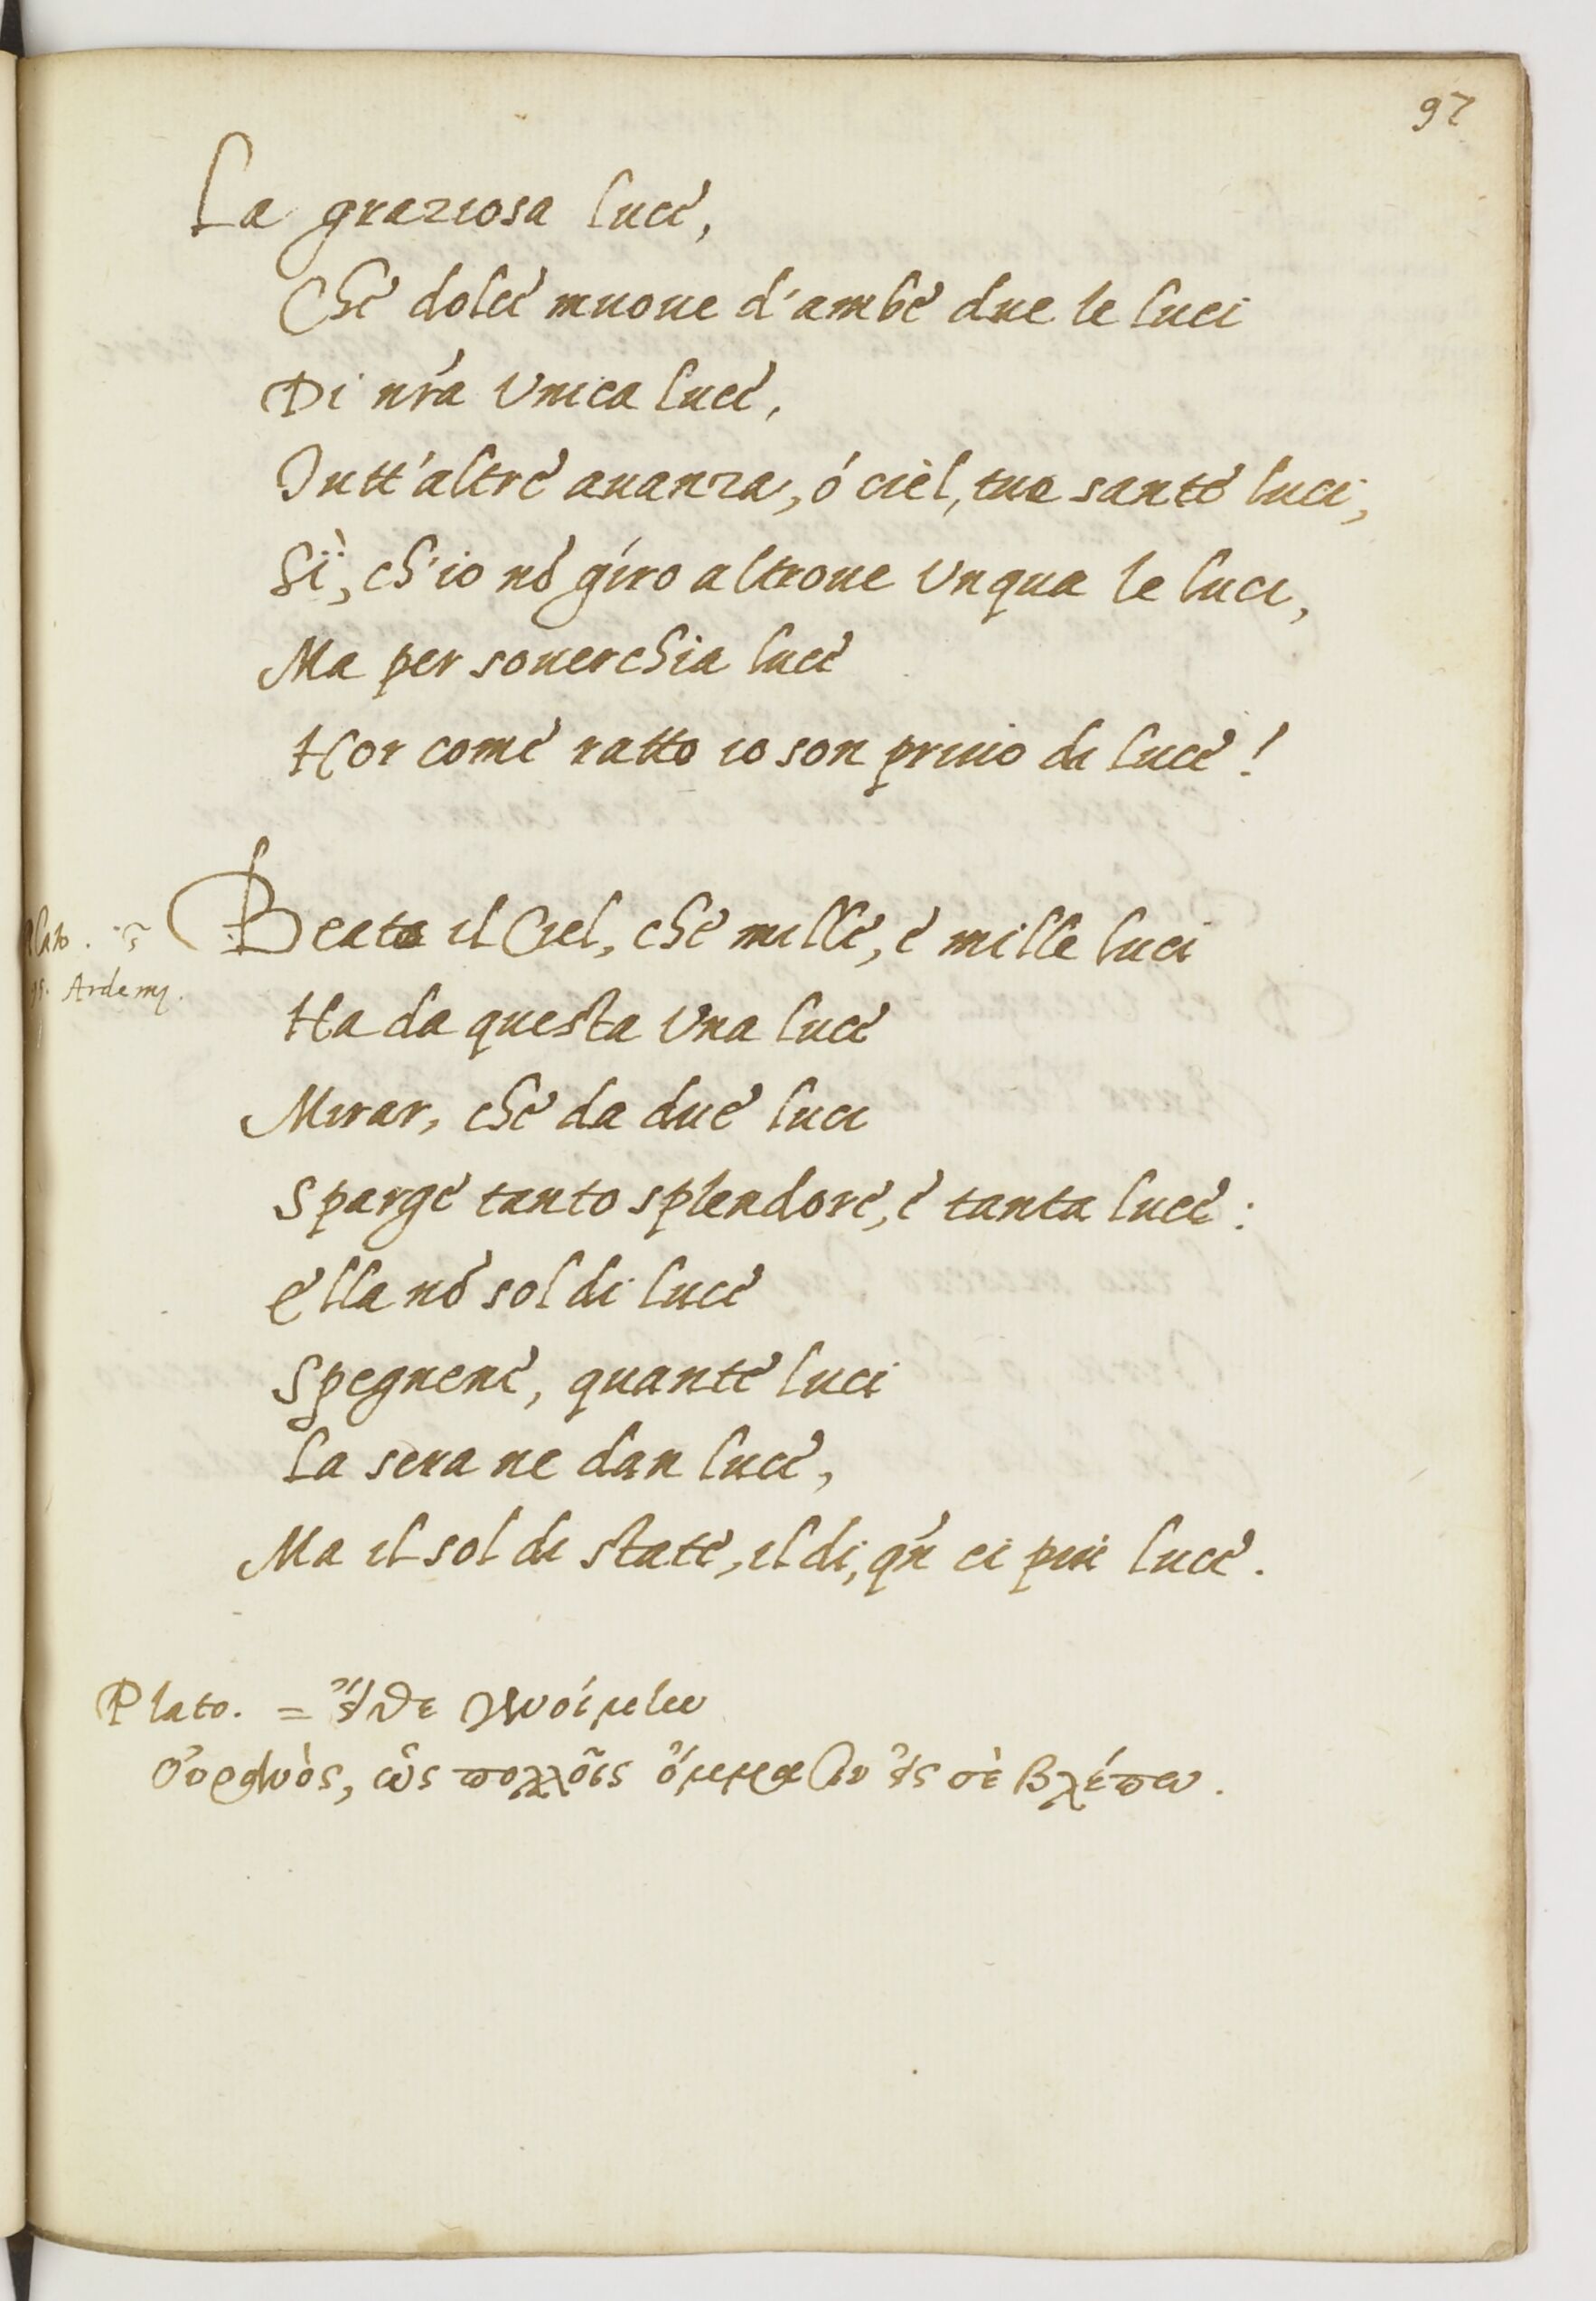 97
La graziosa luce,
Che dolce muoue d'ambe due le luci
Di nr̃a vnica luce,
Tutt'altre auanza, ó ciel, tue sante luci,
Sì, ch'io nõ giro altroue vnqua le luci,
Ma per souerchia luce
Hor come ratto io son priuo di luce!
Beato il Ciel, che mille, e mille luci
Ardemẏ.
Ha da questa vna luce
Mirar, che da due luci
Sparge tanto splendore, e tanta luce:
Ella nõ sol di luce
Spegnene, quante luci
La sera ne dan luce,
Ma il sol di state, il di, qñ ci piu luce.
Plato. = εἴθε γενοίμην
οὐρανὸς, ὡς πολλοῖς ὄμμασιν εἴς σὲ βλέπω.